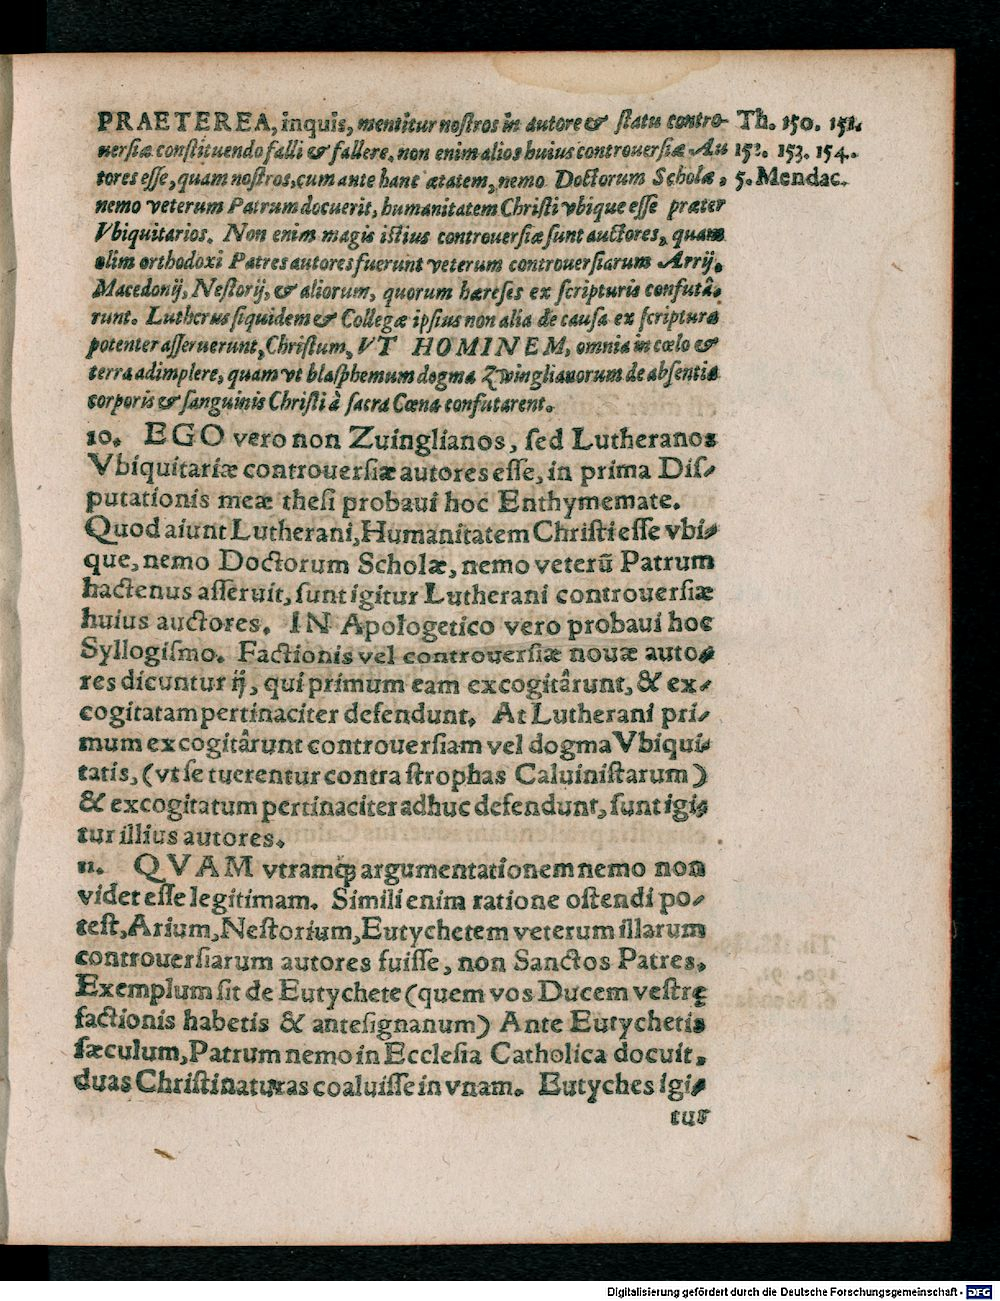 PRAETEREA, inquis, mentitur nostros in autore & statu contro-
uersiæ constituendo falli & fallere, non enim alios huius controuersiæ Au
tores esse, quam nostros, cum ante hanc ætatem, nemo Doctorum Scholæ,
nemo veterum Patrum docuerit, humanitatem Christi vbique esse præter
Vbiquitarios. Non enim magis istius controuersiæ sunt auctores, quam
olim orthodoxi Patres autores fuerunt veterum controuersiarum Arrij,
Macedonij, Nestorij, & aliorum, quorum hæreses ex scripturis confutâ-
runt. Lutherus siquidem & Collegæ ipsius non alia de causa ex scriptura
potenter asseruerunt, Christum, VT HOMINEM, omnia in cœlo &
terra adimplere, quam vt blasphemum dogma Zwinglianorum de absentia
corporis & sanguinis Christi à sacra Cœna confutarent.
Th. 150. 151.
152. 153. 154.
5. Mendac.
10. EGO vero non Zuinglianos, sed Lutheranos
Vbiquitariæ controuersiæ autores esse, in prima Dis-
putationis meæ thesi probaui hoc Enthymemate.
Quod aiunt Lutherani, Humanitatem Christi esse vbi-
que, nemo Doctorum Scholæ, nemo veterũ Patrum
hactenus asseruit, sunt igitur Lutherani controuersiæ
huius auctores. IN Apologetico vero probaui hoc
Syllogismo. Factionis vel controuersiæ nouæ auto-
res dicuntur ij, qui primum eam excogitârunt, & ex-
cogitatam pertinaciter defendunt. At Lutherani pri-
mum excogitârunt controuersiam vel dogma Vbiqui-
tatis, (vt se tuerentur contra strophas Caluinistarum)
& excogitatum pertinaciter adhuc defendunt, sunt igi-
tur illius autores.
11. QVAM vtramq́ꝫ argumentationem nemo non
videt esse legitimam. Simili enim ratione ostendi po-
test, Arium, Nestorium, Eutychetem veterum illarum
controuersiarum autores fuisse, non Sanctos Patres.
Exemplum sit de Eutychete (quem vos Ducem vestrę
factionis habetis & antesignanum) Ante Eutychetis
sæculum, Patrum nemo in Ecclesia Catholica docuit,
duas Christi naturas coaluisse in vnam. Eutyches igi-
tur
Digitalisierung gefördert durch die Deutsche Forschungsgemeinschaft - DFG